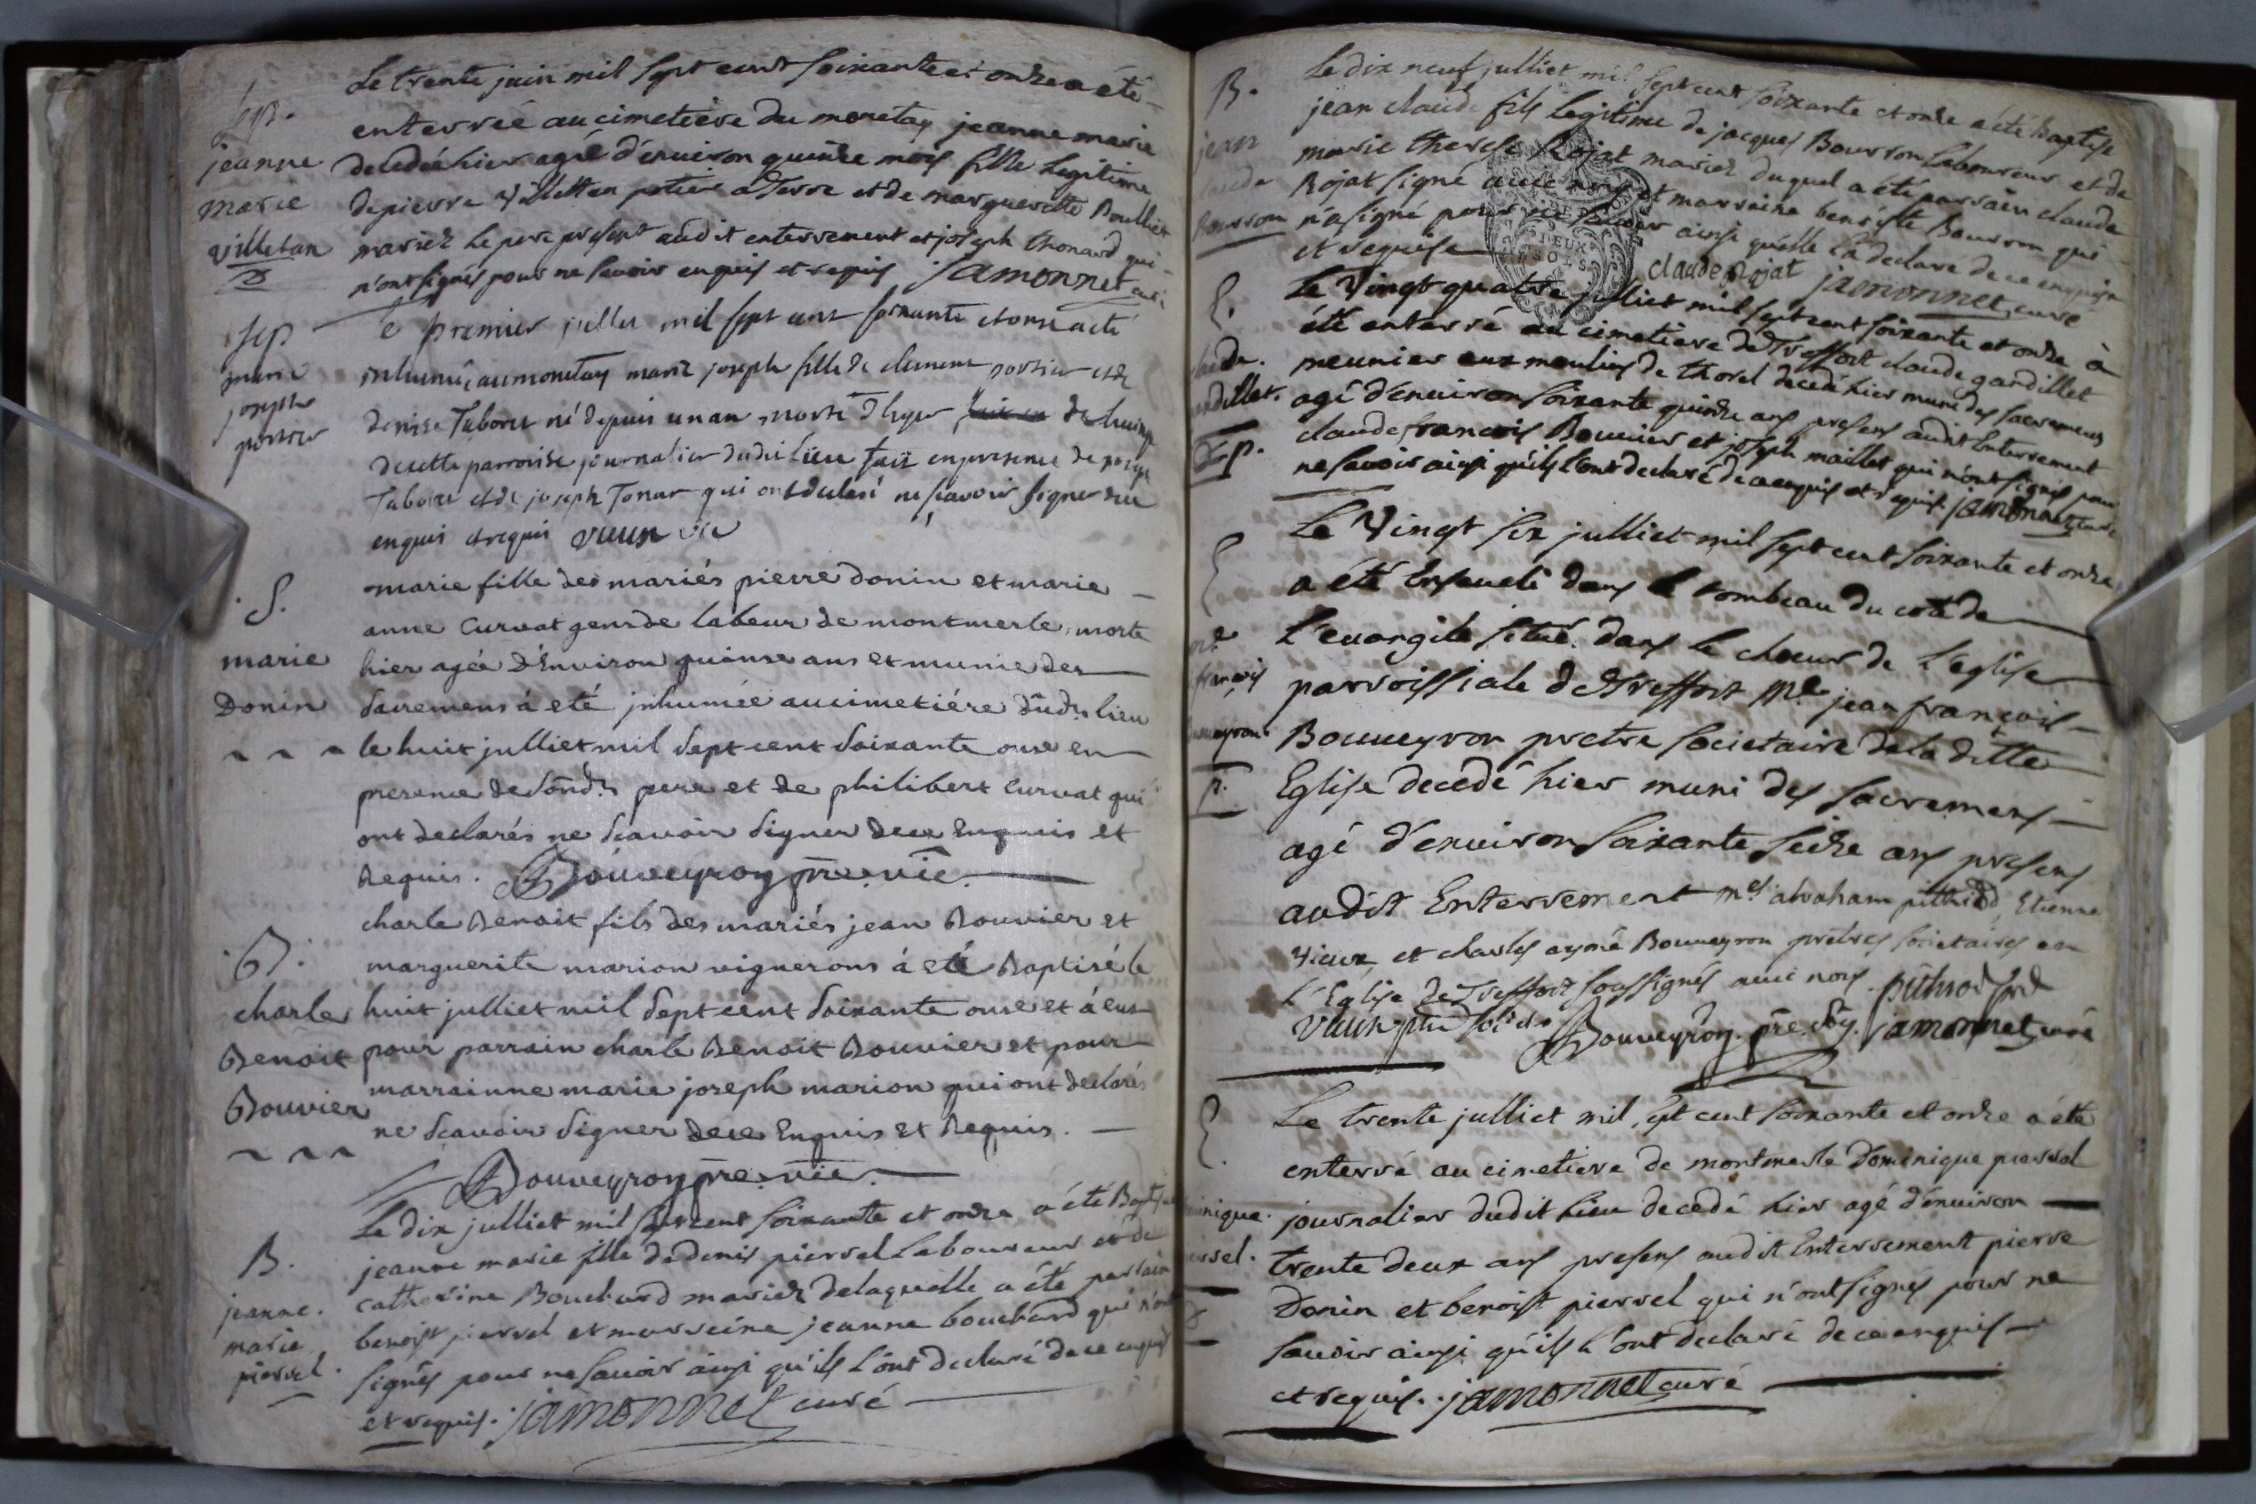 Sep.
jeanne
marie
villetan
Le trente juin mil sept cent soixante et onze a été
enterrée au cimetiere du monetay jeanne marie
decedée hier agée d'environ quinze mois fille legitime
de pierre Villettan potier a Terre et de margueritte Boulliet
mariez le pere present audit enterrement et joseph thonard qui
n'ont signés pour ne savoir enquis et requis jamonnet curé
Sep
marie
joseph
portier
Le premier juillet mil sept cent soixante et onze a été
inhumée au monetay marie joseph fille de clement portier et de
denise Taboret né depuis un an morte d'hyer
de cette parroisse journalier dudit lieu fait en presence de
Taboret et de joseph Tonar qui ont declaré ne scavoir signer de ce
enquis et requis vieux vic
S.
marie
Donin
marie fille des mariés pierre donin et marie
anne Curvat gens de labeur de montmerle, morte
hier agée d'Environ quinse ans et munie des
Sacremens à eté jnhumée au cimetiére dud. lieu
le huit julliet mil sept cent soixante onse en
presence de sond. pere et de philibert Curvat qui
ont declarés ne scavoir signer de ce Enquis et
Requis. Bouveyron pre. vic.
B.
charle
Benoit
Bouvier
charle Benoit fils des mariés jean Bouvier et
marguerite marion vignerons à eté Baptisé le
huit julliet mil sept cent soixante onse et à eus
pour parrain charle Benoit Bouvier et pour
marrainne marie joseph marion qui ont declarés
ne scavoir signer de ce Enquis et Requis.
Bouveyron pre. vic.
B.
jeanne.
marie
pierrel.
Le dix julliet mil sept cent soixante et onze a été Baptisée
jeanne marie fille de denis pierrel Laboureur et de
catherine Bouchard mariez de laquelle a été parrain
benoist pierrel et marreine jeanne bouchard qui n'ont
signés pour ne savoir ainsi qu'ils l'ont declaré de ce enquis
et requis. jamonnet curé
B.
jean
claude
Bourron
Le dix neuf julliet mil sept cent soixante et onze a été Baptisé
jean claude fils legitime de jacques Bourron Laboureur et de
marie therese Rojat mariez duquel a été parrain claude
Rojat signé avec nous et marreine benoiste Bourron qui
n'a signé pour ne savoir ainsi qu'elle l'a declaré de ce enquise
et requise claude Rojat jamonnet curé
E.
claude.
gardillet.
p.
Le Vingt quatre julliet mil sept cent soixante et onze à
été enterré au cimetiere de Treffort claude gardillet
meunier aux moulins de thorel decedé hier muni des sacremens
agé d'environ soixante quinze ans presens audit Enterrement
claude françois Bouvier et joseph maillet qui n'ont signés pour
ne savoir ainsi qu'ils l'ont declaré de ce enquis et requis. jamonnet curé
E
françois
Bouveyron
p.
Le Vingt six julliet mil sept cent soixante et onze
a été Enseveli dans le tombeau du coté de
l'evangile situé dans le choeur de l'eglise
parroissiale de Treffort Mre jean françois
Bouveyron pretre societaire de la ditte
Eglise decedé hier muni des sacremens
agé d'environ soixante seize ans presens
audit Enterrement mes abraham pithiod, Etienne
vieux, et charles aymé Bouveyron prêtres societaires en
l'Eglise de Treffort soussignés avec nous. pithiod
Vieux ptre soc. Bouveyron. pre. jamonnet curé
E.
dominique.
pierrel.
Le trente julliet mil sept cent soixante et onze a été
enterré au cimetiere de montmerle Dominique pierrel
journalier dudit lieu decedé hier agé d'environ
trente deux ans presens audit Enterrement pierre
Donin et benoist pierrel qui n'ont signés pour ne
savoir ainsi qu'ils l'ont declaré de ce enquis
et requis. jamonnet curé